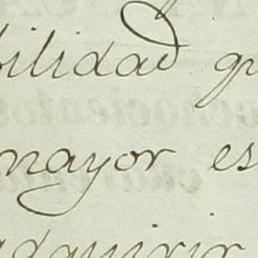 bilidad qu
mayor es
adquirir